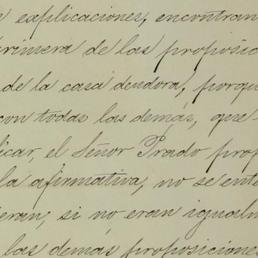 explicaciones, encontran
primera de las proposic
de la casa deudora, porqu
con todas las demás, que
icar, el Señor Prado prop
la afirmativa, no se ente
ieran, si no eran igualm
las demás proposiciones